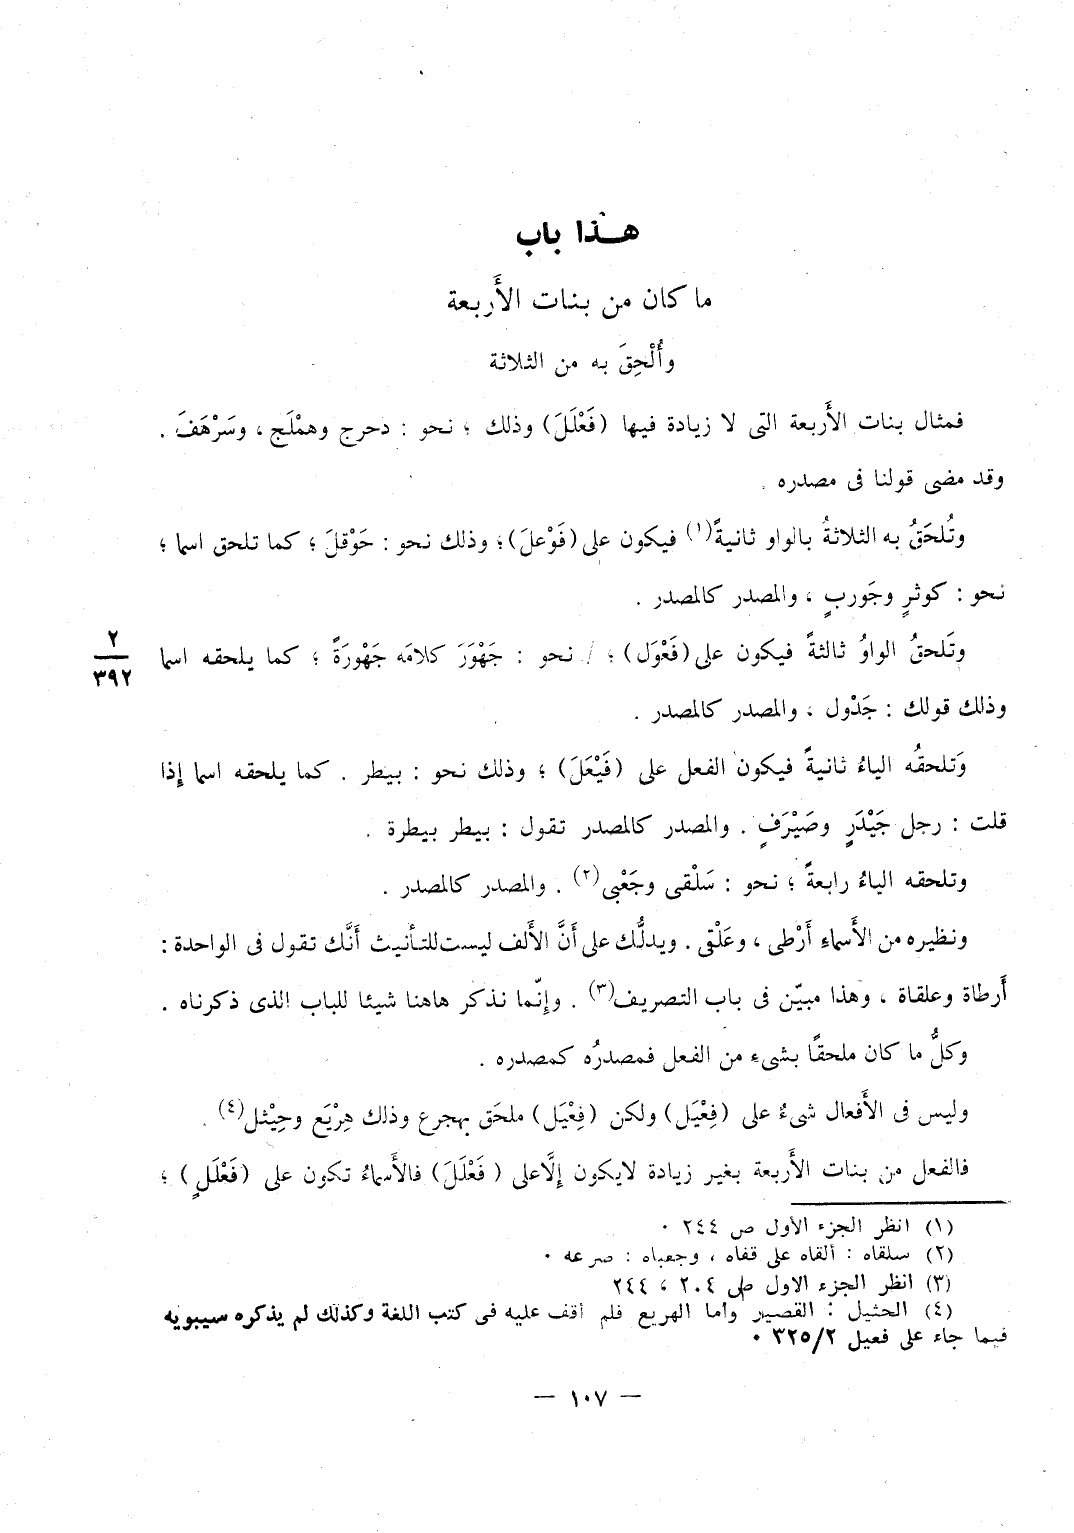 هـذا باب
ما كان من بنات الأَربعة
وأُلْحِقَ به من الثلاثة
فمثال بنات الأَربعة التى لا زيادة فيها (فَعْلَلَ) وذلك ؛ نحو : دحرج وهمْلَج ، وسَرْهَفَ .
وقد مضى قولنا فى مصدره .
وتُلحَقُ به الثلاثةُ بالواو ثانيةً(١) فيكون على (فَوْعلَ) ؛ وذلك نحو : حَوْقلَ ؛ كما تلحق اسما ؛
نحو : كوثرٍ وجَوربٍ ، والمصدر كالمصدر .
وتَلحقُ الواوُ ثالثةً فيكون على (فَعْوَل) ؛ / نحو : جَهْوَرَ كلامَه جَهْورَةً ؛ كما يلحقه اسما
٢
٣٩٢
وذلك قولك : جَدْول ، والمصدر كالمصدر .
وَتلحقُه الياءُ ثانيةً فيكون الفعل على (فَيْعَلَ) ؛ وذلك نحو : بيطر . كما يلحقه اسما إِذا
قلت : رجل جَيْدَرٍ وصَيْرَفٍ . والمصدر كالمصدر تقول : بيطر بيطرة .
وتلحقه الياءُ رابعةً ؛ نحو : سَلْقى وجَعْبى(٢) . والمصدر كالمصدر .
ونظيره من الأَسماءِ أَرْطى ، وعَلْقى . ويدلُّك على أَنَّ الأَلف ليست للتأنيث أَنَّك تقول فى الواحدة :
أَرطاة وعلقاة ، وهذا مبيّن فى باب التصريف(٣) . وإِنّما نذكر هاهنا شيئا للباب الذى ذكرناه .
وكلُّ ما كان ملحقًا بشىءٍ من الفعل فمصدرُه كمصدره .
وليس فى الأَفعال شىءٌ على (فِعْيَل) ولكن (فِعْيَل) ملحَق بهجرع وذلك هِرْيَع وحِيْثل(٤) .
فالفعل من بنات الأَربعة بغير زيادة لايكون إِلَّاعلى ( فَعْلَلَ) فالأَسماءُ تكون على (فَعْلَلٍ) ؛
(١) انظر الجزء الأول ص ٢٤٤ ٠
(٢) سلقاه : ألقاه على قفاه ، وجعباه : صرعه ٠
(٣) انظر الجزء الاول ص ٢٠٤ ، ٢٤٤
(٤) الحثيل : القصير وأما الهريع فلم أقف عليه فى كتب اللغة وكذلك لم يذكره سيبويه
فيما جاء على فعيل ٣٢٥/٢ ٠
— ١٠٧ —